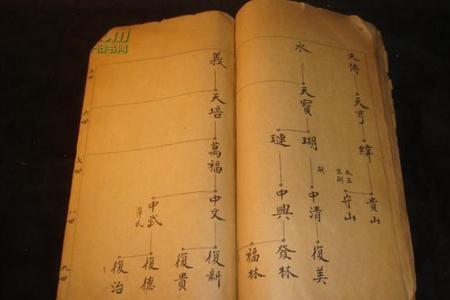 水
義
天亨
天寶
天培
緯
瑚
璉
萬福
貴山
守山
中清
中興
中文
中武
復美
發林
福林
復新
復貴
復德
復治
旧书网